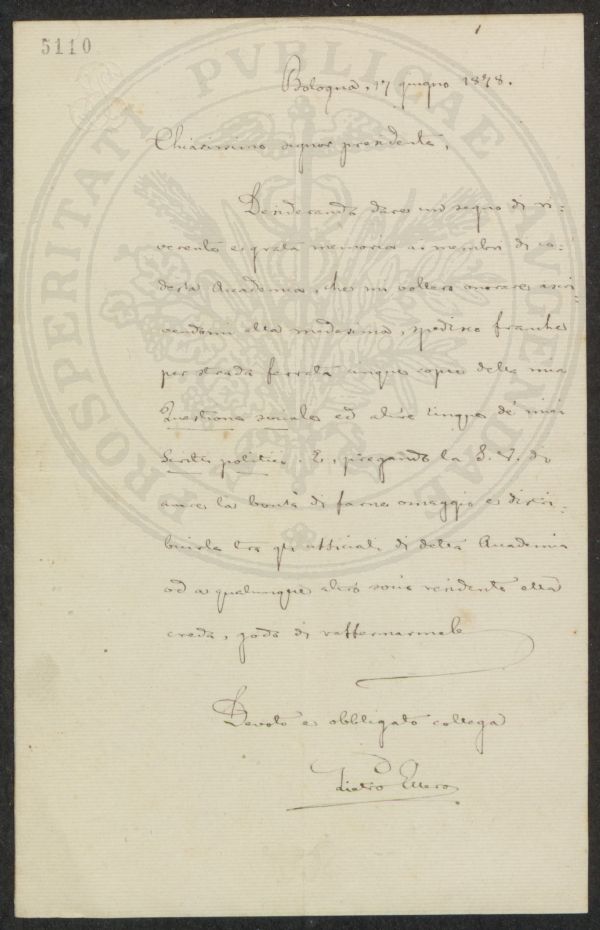 5110
Bologna, 17 giugno 1878.
Chiarissimo signor presidente,
Desiderando dare un segno di ri-
verente e grata memoria ai membri di co-
desta Accademia, che mi vollero onorare ascri-
vendomi alla medesima, spedisco franche
per strada ferrata cinque copie della mia
Questione sociale ed altre cinque de' miei
Scritti politici. E, pregando la S. V. di
avere la bontà di farne omaggio e distri-
buirle tra gli ufficiali di detta Accademia
od a qualunque altro socio residente ella
creda, godo di raffermarmele
Devoto e obbligato collega
Pietro Ellero
PROSPERITATI PVBLICAE AVGENDAE